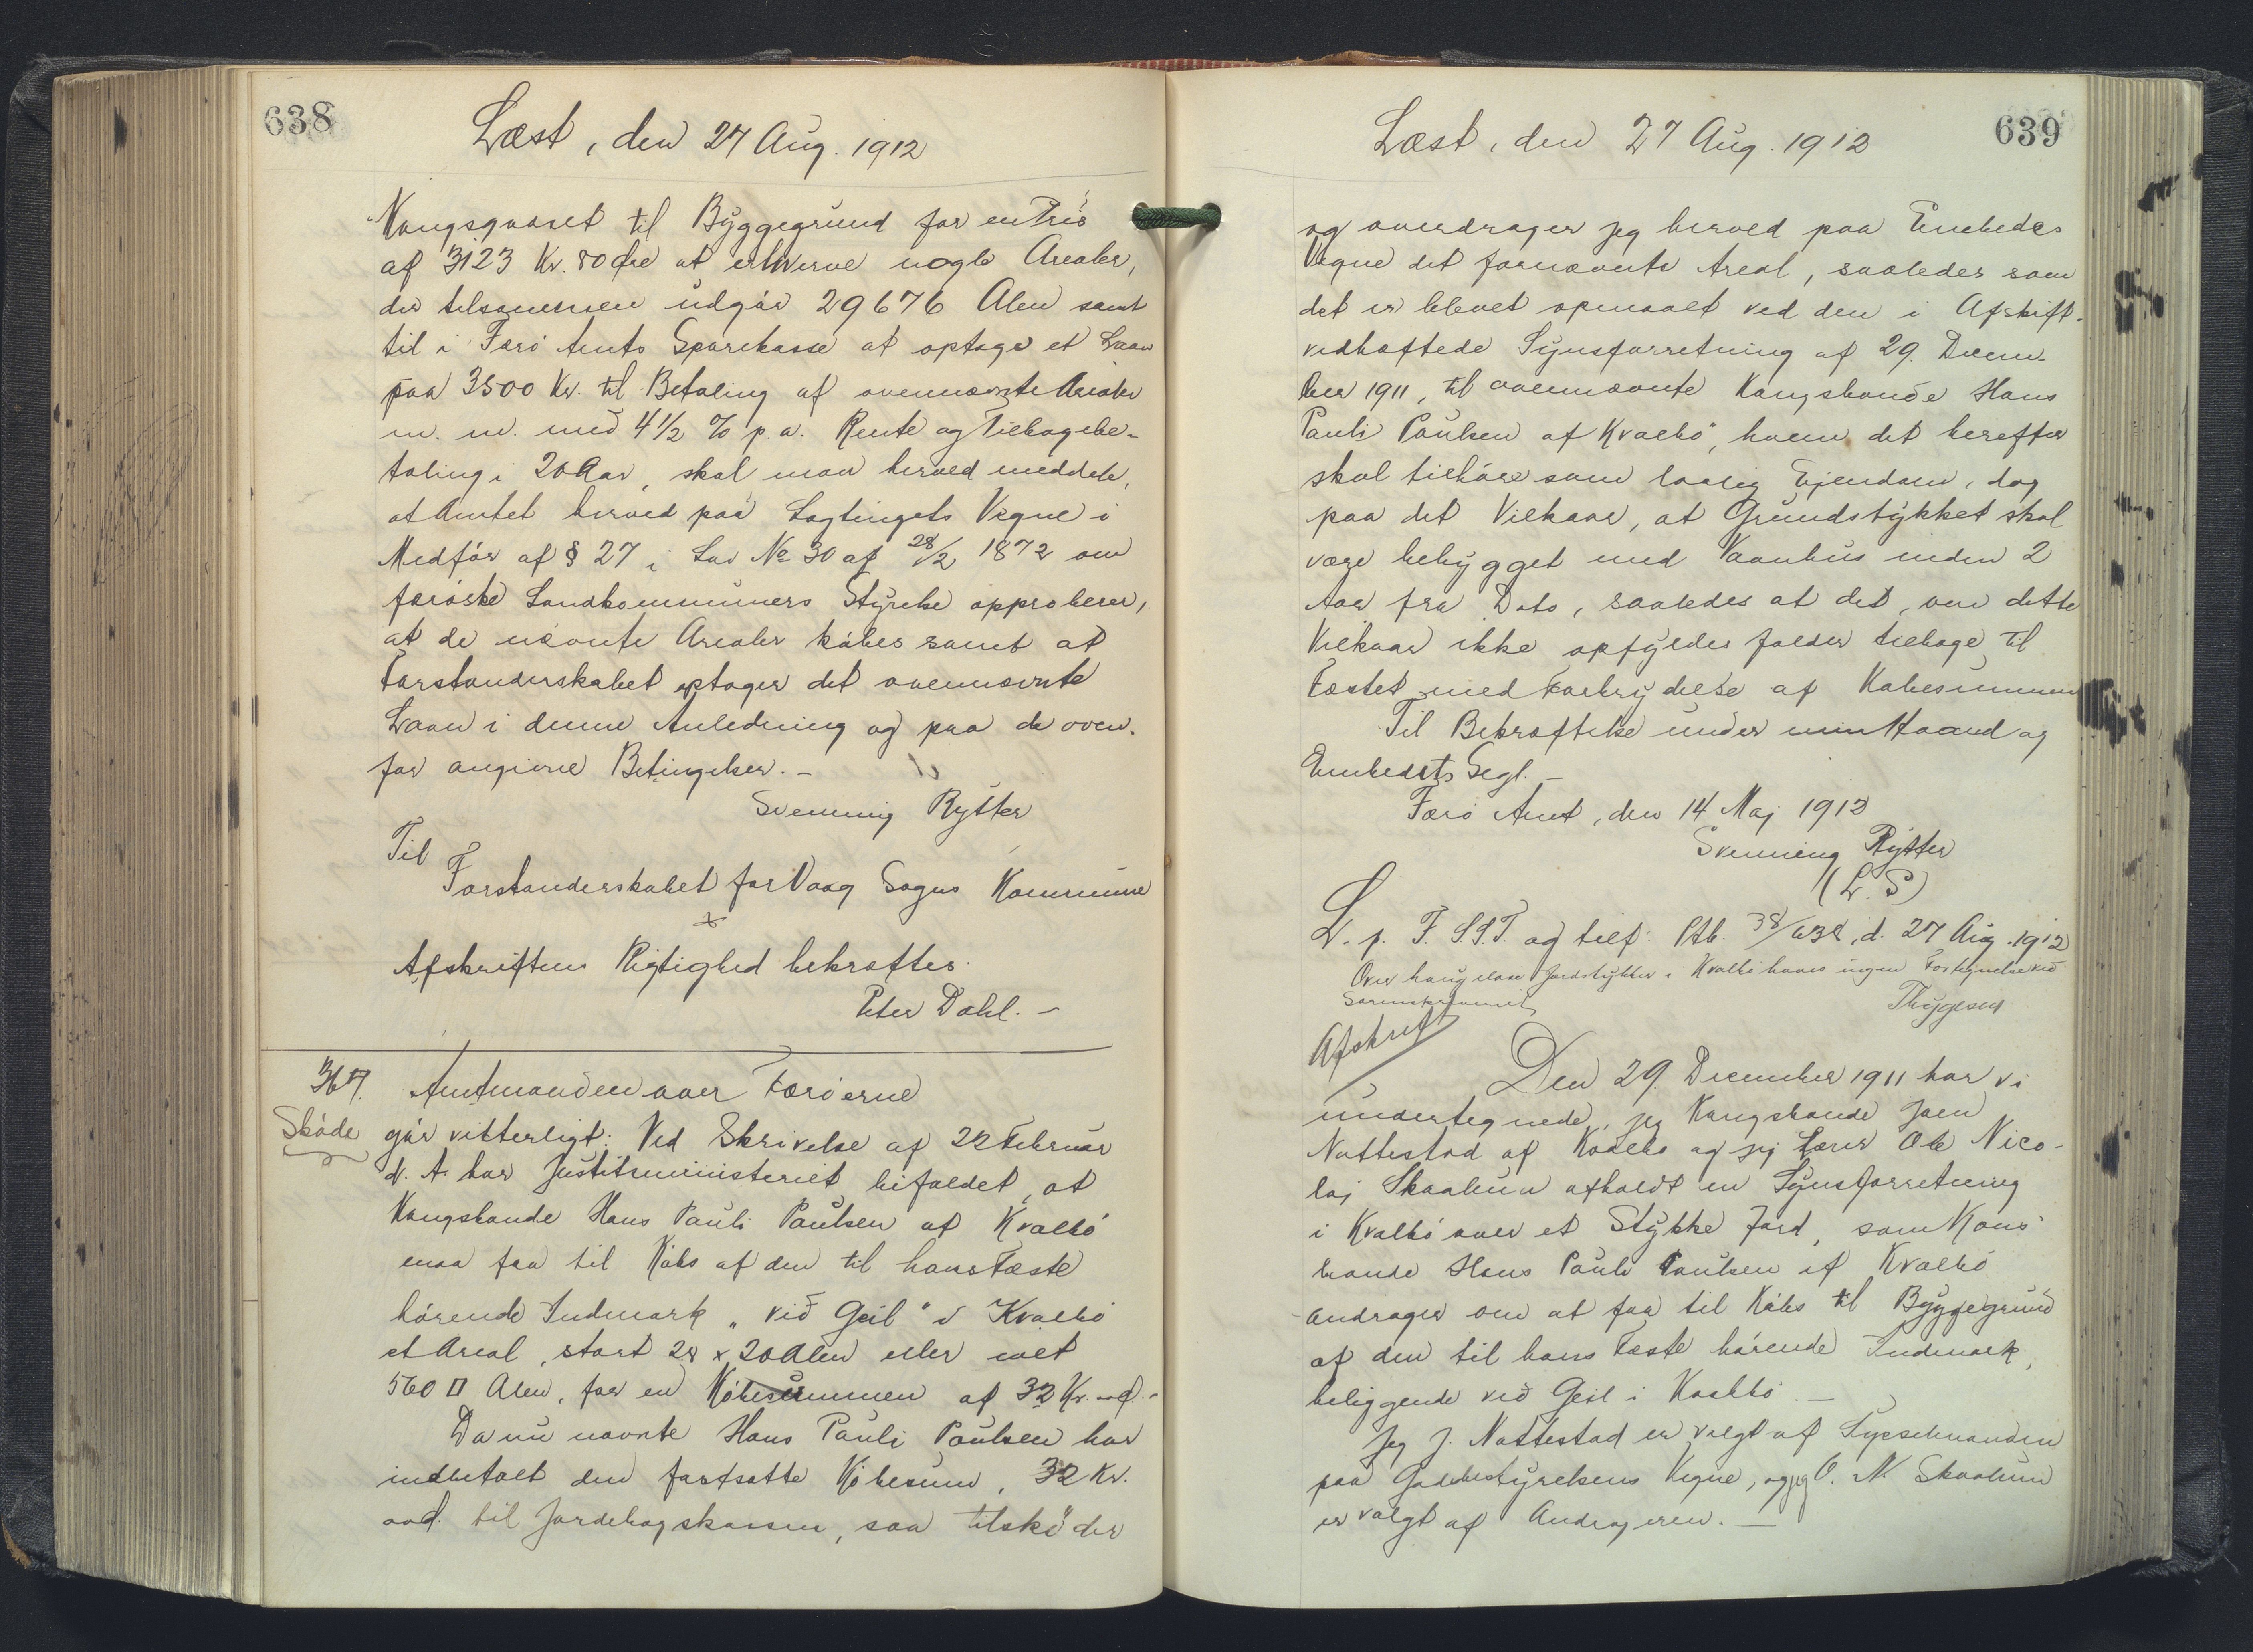 638
Læst, den 27 Aug. 1912
Kongsgaaret til Byggegrund for en Pris
af 3123 Kr. 80 Øre at erhverve nogle Arealer,
der tilsammen udgør 29676 Alen samt
til i Færø Amts Sparekasse at optage et Laan
paa 3500 Kr. til Betaling af ovennævnte Arealer
m. m. med 4 1/2 % p.a. Rente og Tilbagebe-
taling i 20 Aar, skal man herved meddele,
at Amtet herved paa Lagtingets Vegne i
Medfør af § 27 i Lov No 30 af 28/2 1872 om
færøske Landkommuners Styrelse approberer,
at de nævnte Arealer købes samt at
Forstanderskabet optager det ovennævnte
Laan i denne Anledning og paa de oven-
for angivne Betingelser. —
Svenning Rytter
Til
Forstanderskabet for Vaag Sogns Kommune
Afskriftens Rigtighed bekræftes.
Peter Dahl. —
367. Amtmanden over Færøerne
Skøde gør vitterligt: Ved Skrivelse af 22 Februar
d. A. har Justitsministeriet bifaldet, at
Kongsbonde Hans Pauli Poulsen af Kvalbø
maa faa til Købs af den til hans Fæste
hørende Indmark "við Geil" i Kvalbø
et Areal, stort 28 x 20 Alen eller ialt
560 □ Alen, for en Købesummen af 32 Kr. —
Da nu nævnte Hans Pauli Poulsen har
indbetalt den fastsatte Købesum, 32 Kr.
til Jordebogskassen, saa tilskøder
639
Læst, den 27 Aug. 1912
og overdrager jeg herved paa Embedes
Vegne det fornævnte Areal, saaledes som
det er blevet opmaalt ved den i Afskrift
vedhæftede Synsforretning af 29. Decem-
ber 1911, til ovennævnte Kongsbonde Hans
Pauli Poulsen af Kvalbø, hvem det herefter
skal tilhøre som lovlig Ejendom, dog
paa det Vilkaar, at Grundstykket skal
være bebygget med Vaanhus inden 2
Aar fra Dato, saaledes at det, om dette
Vilkaar ikke opfyldes falder tilbage til
Fæstet med Forbrydelse af Købesummen
Til Bekræftelse under min Haand og
Embedets Segl. —
Færø Amt, den 14 Maj 1912
Svenning Rytter
(L. S)
L. p. F. S.S.T. og tilf. Ptb. 38/638, d. 27 Aug. 1912
Over haugelose Jordstykker i Kvalbø haves ingen Fortegnelse ved
Sorenskriveriet
Thygesen
Afskrift
Den 29. December 1911 har vi
undertegnede, jeg Kongsbonde Joen
Nattestad af Kvalbø og jeg Lærer Ole Nico-
laj Skaalum afholdt en Synsforretning
i Kvalbø over et Stykke Jord, som Kons-
bonde Hans Pauli Poulsen af Kvalbø
andrager om at faa til Købs til Byggegrund
af den til hans Fæste hørende Indmark,
beliggende við Geil i Kvalbø. —
Jeg J. Nattestad er valgt af Sysselmanden
paa Godsbestyrelsens Vegne, og jeg O. N. Skaalum
er valgt af Andrageren. —